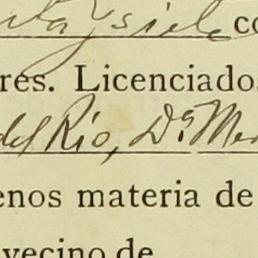 y Isiela co
res. Licenciados
del Río, Dª Me
enos materia de
vecino de